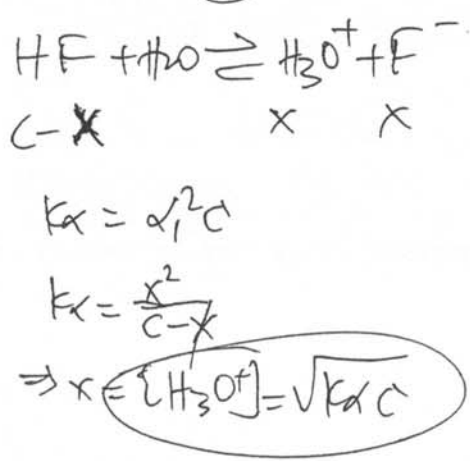 HF + H2O ⇌ H3O⁺ + F⁻
C-x x x
Kα = α₁²C
Kα = x²/(C-x)
⇒ x = [H3O⁺] = √(Kα C)